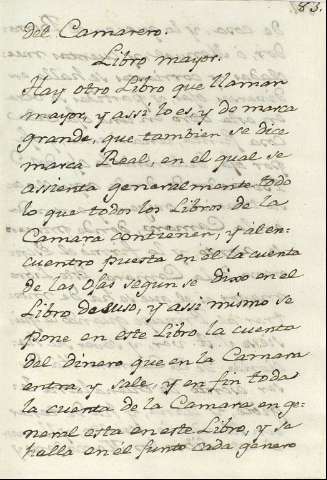 83.
del Camarero.
Libro mayor.
Hay otro Libro que llaman
mayor, y assi lo es, y de marca
grande, que tambien se dice
marca Real, en el qual se
assienta generalmente todo
lo que todos los Libros de la
Camara contienen, y al en-
cuentro puesta en èl la cuenta
de las Ojas segun se dixo en el
Libro de suso, y assi mismo se
pone en este Libro la cuenta
del dinero que en la Camara
entra, y sale, y en fin toda
la cuenta de la Camara en ge-
neral esta en este Libro, y se
halla en el junto cada genero